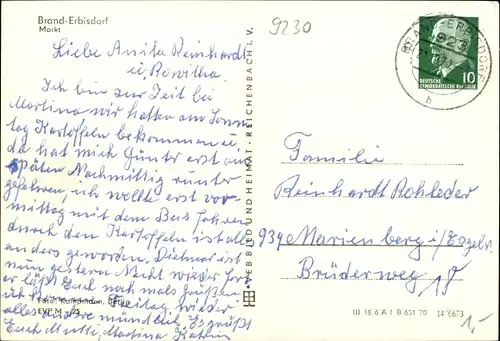 Brand-Erbisdorf
Markt
9230
Liebe Anita Reinhardt
u.
Ich bin zur Zeit bei
Martina wir hatten am Sonn
tag Kartoffeln bekommen u.
da hat mich Günter erst am
späten Nachmittag runter
gefahren, ich wollte erst vor
mittag mit dem Bus fahren
durch den Kartoffeln ist all.
anders geworden. Dietmar ist
nun gestern Nacht wieder
Euch noch mals
Freitag wieder
alles andre mündlich. Es grüßt
Euch Mutti, Martina
Foto: Kampmann, Berlin
EVP M -,25
VEB BILD UND HEIMAT · REICHENBACH i. V.
BRAND-ERBISDORF
923
b
DEUTSCHE
DEMOKRATISCHE REPUBLIK
10
Familie
Reinhardt Rohleder
934 Marienberg i/Erzgeb.
Brüderweg
III 18 6 A 1 B 651 70 14 6673
1,-